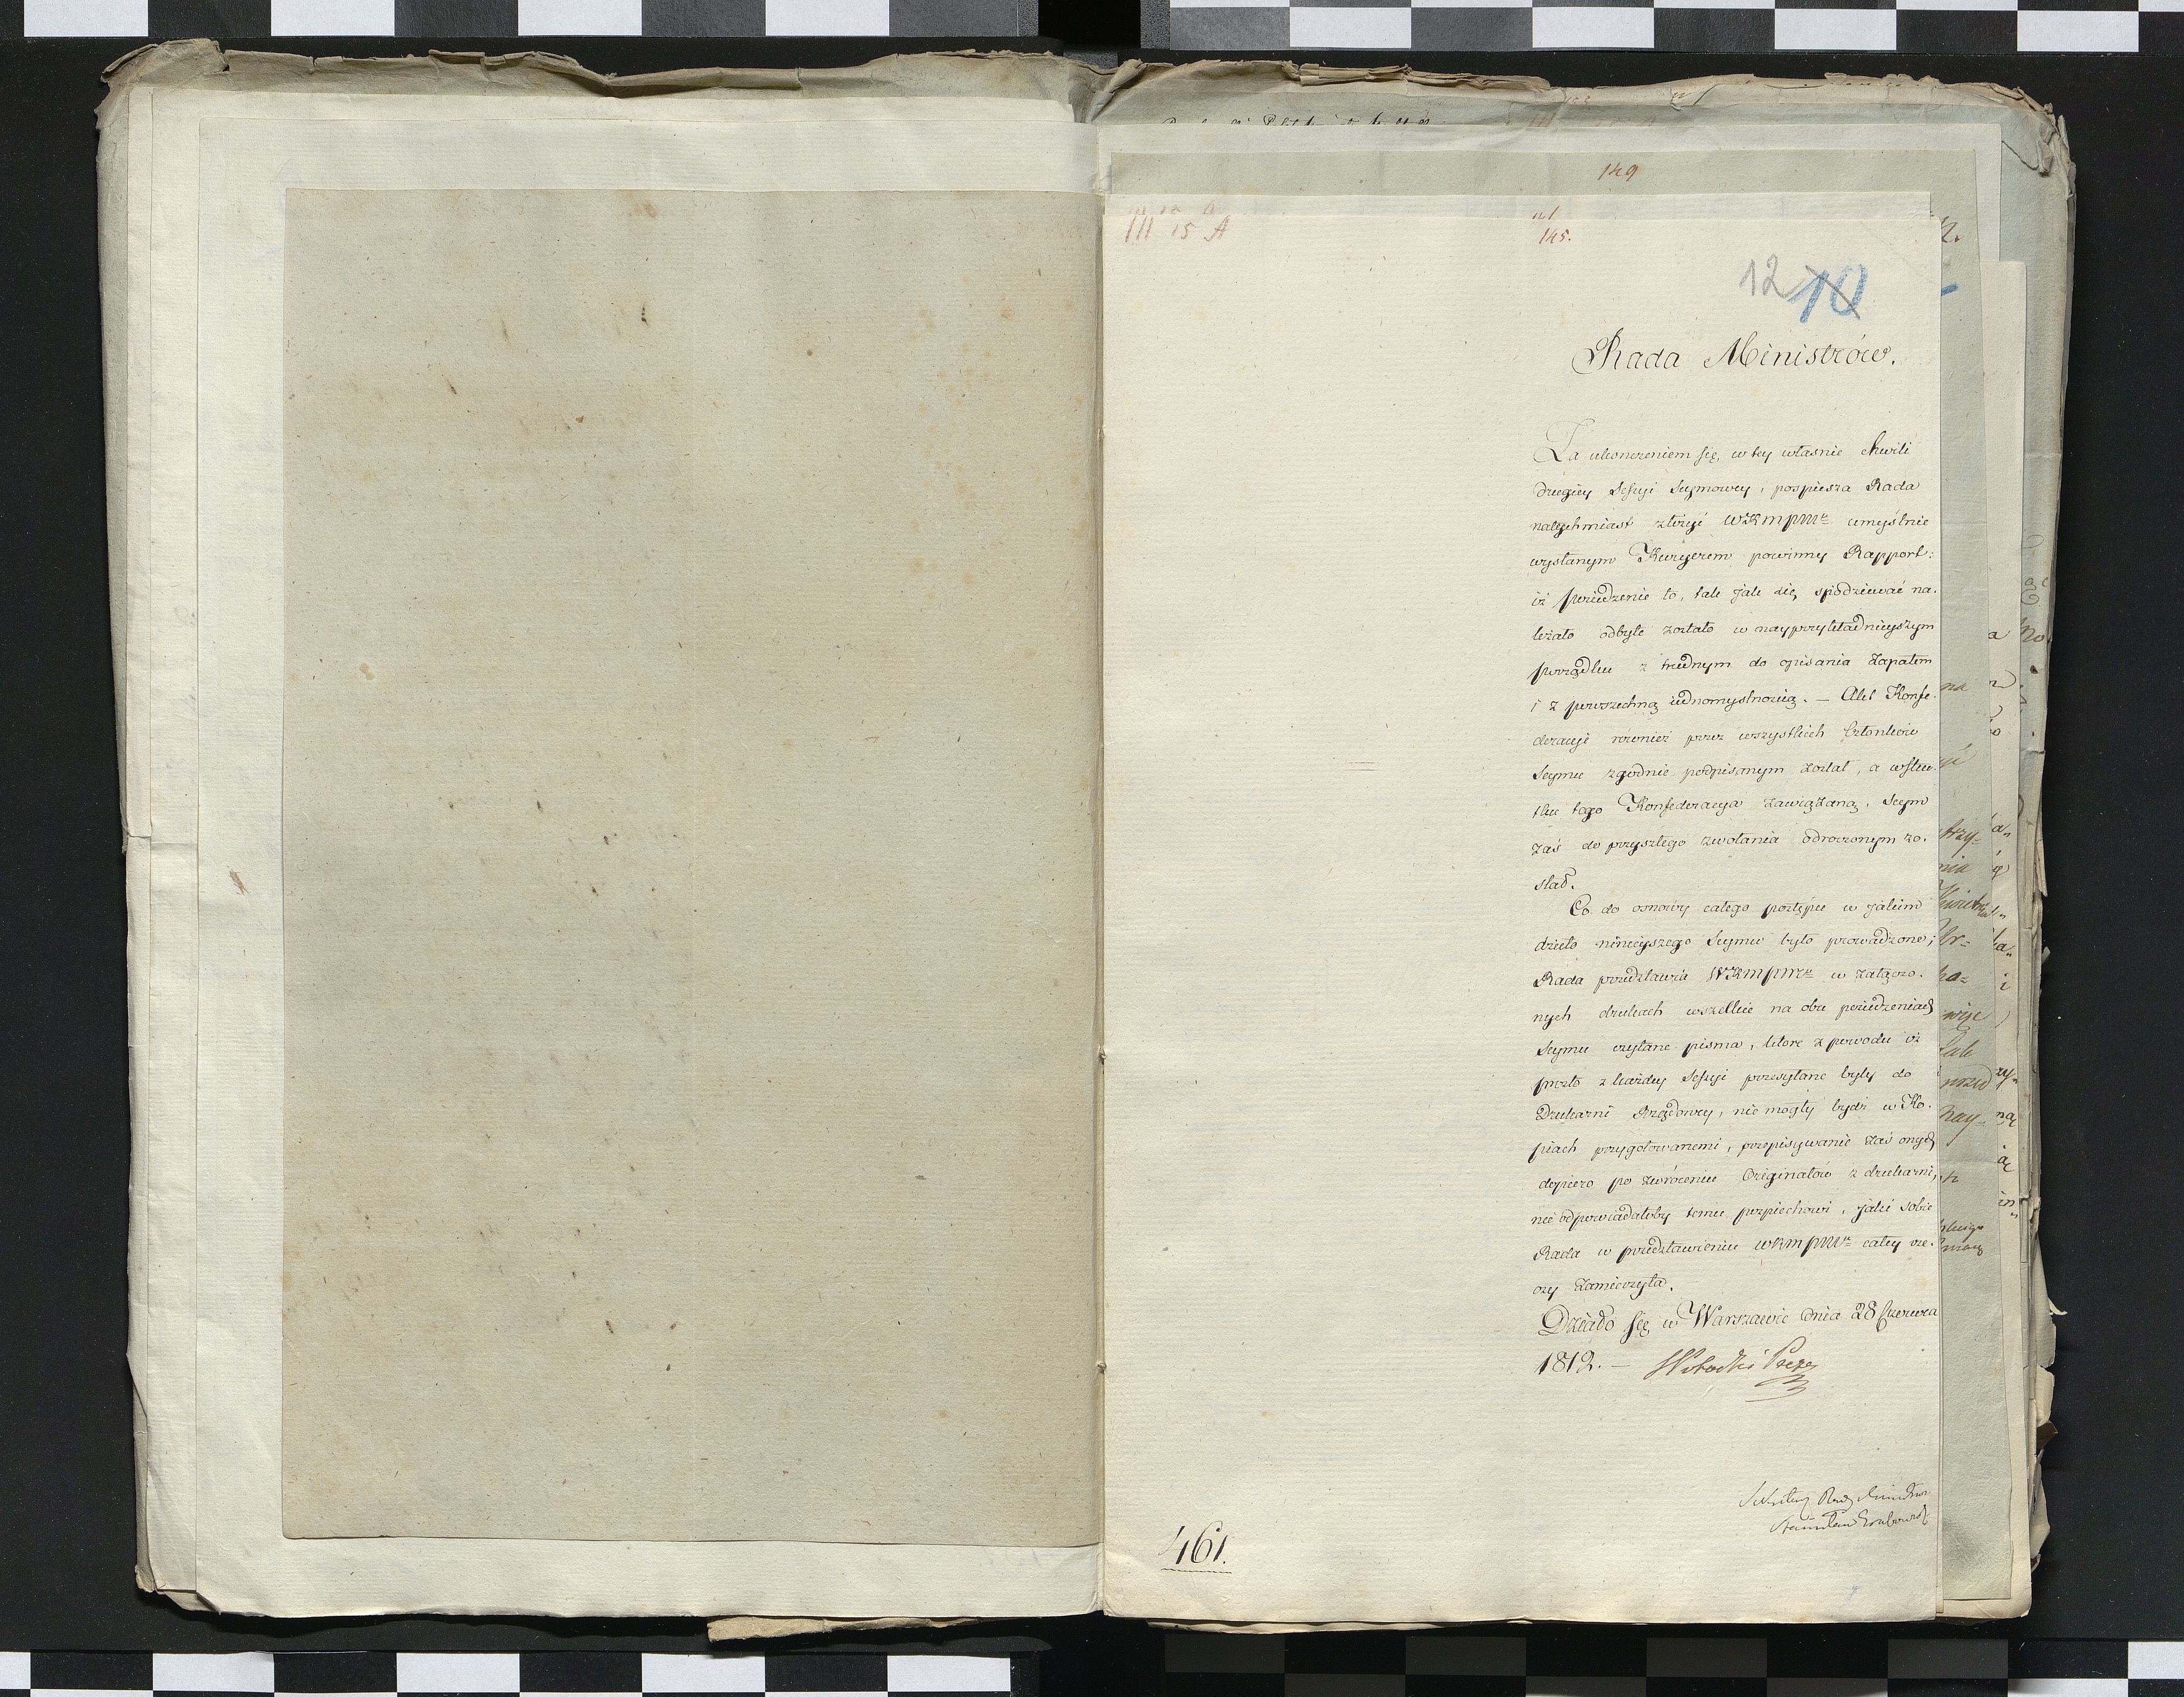 149
III 15 A
145.
12 10
Rada Ministrów.
Za ukonczeniem się, w tey własnie chwili
drugiey Sessyi Seymowey, pospiesza Rada
natychmiast złożyć WKMPMu umyślnie
wysłanym Kuryerem powinny Rapport:
iż posiedzenie to, tak jak się spodziewać na-
leżało odbyte zostało w nayprzykładnieyszym
porządku z trudnym do opisania zapałem
i z powszechną iednomyslnością. — Akt Konfe-
deracyi rownież przez wszystkich Członków
Seymu zgodnie podpisanym został, a w sku-
tku tego Konfederacya zawiązaną, Seym
zaś do przyszłego zwołania odroczonym zo-
stał.
Co do osnowy całego postępu w jakim
dzieło ninieyszego Seymu było prowadzone;
Rada przedstawia WKMPMu w załączo-
nych drukach wszelkie na obu posiedzeniach
Seymu czytane pisma, które z powodu iż
prosto z każdey Sessyi przesyłane były do
Drukarni Rządowey, nie mogły bydź w Ko-
piach przygotowanemi, przepisywanie zaś onych
dopiero po zwróceniu Originałów z drukarni,
nie odpowiadałoby temu pospiechowi, jaki sobie
Rada w przedstawieniu WKMPMu całey rze-
czy zamierzyła.
Działo się w Warszawie dnia 28 Czerwca
1812. —
Sekretarz Rady Ministrów
Stanisław Grabowski
461.